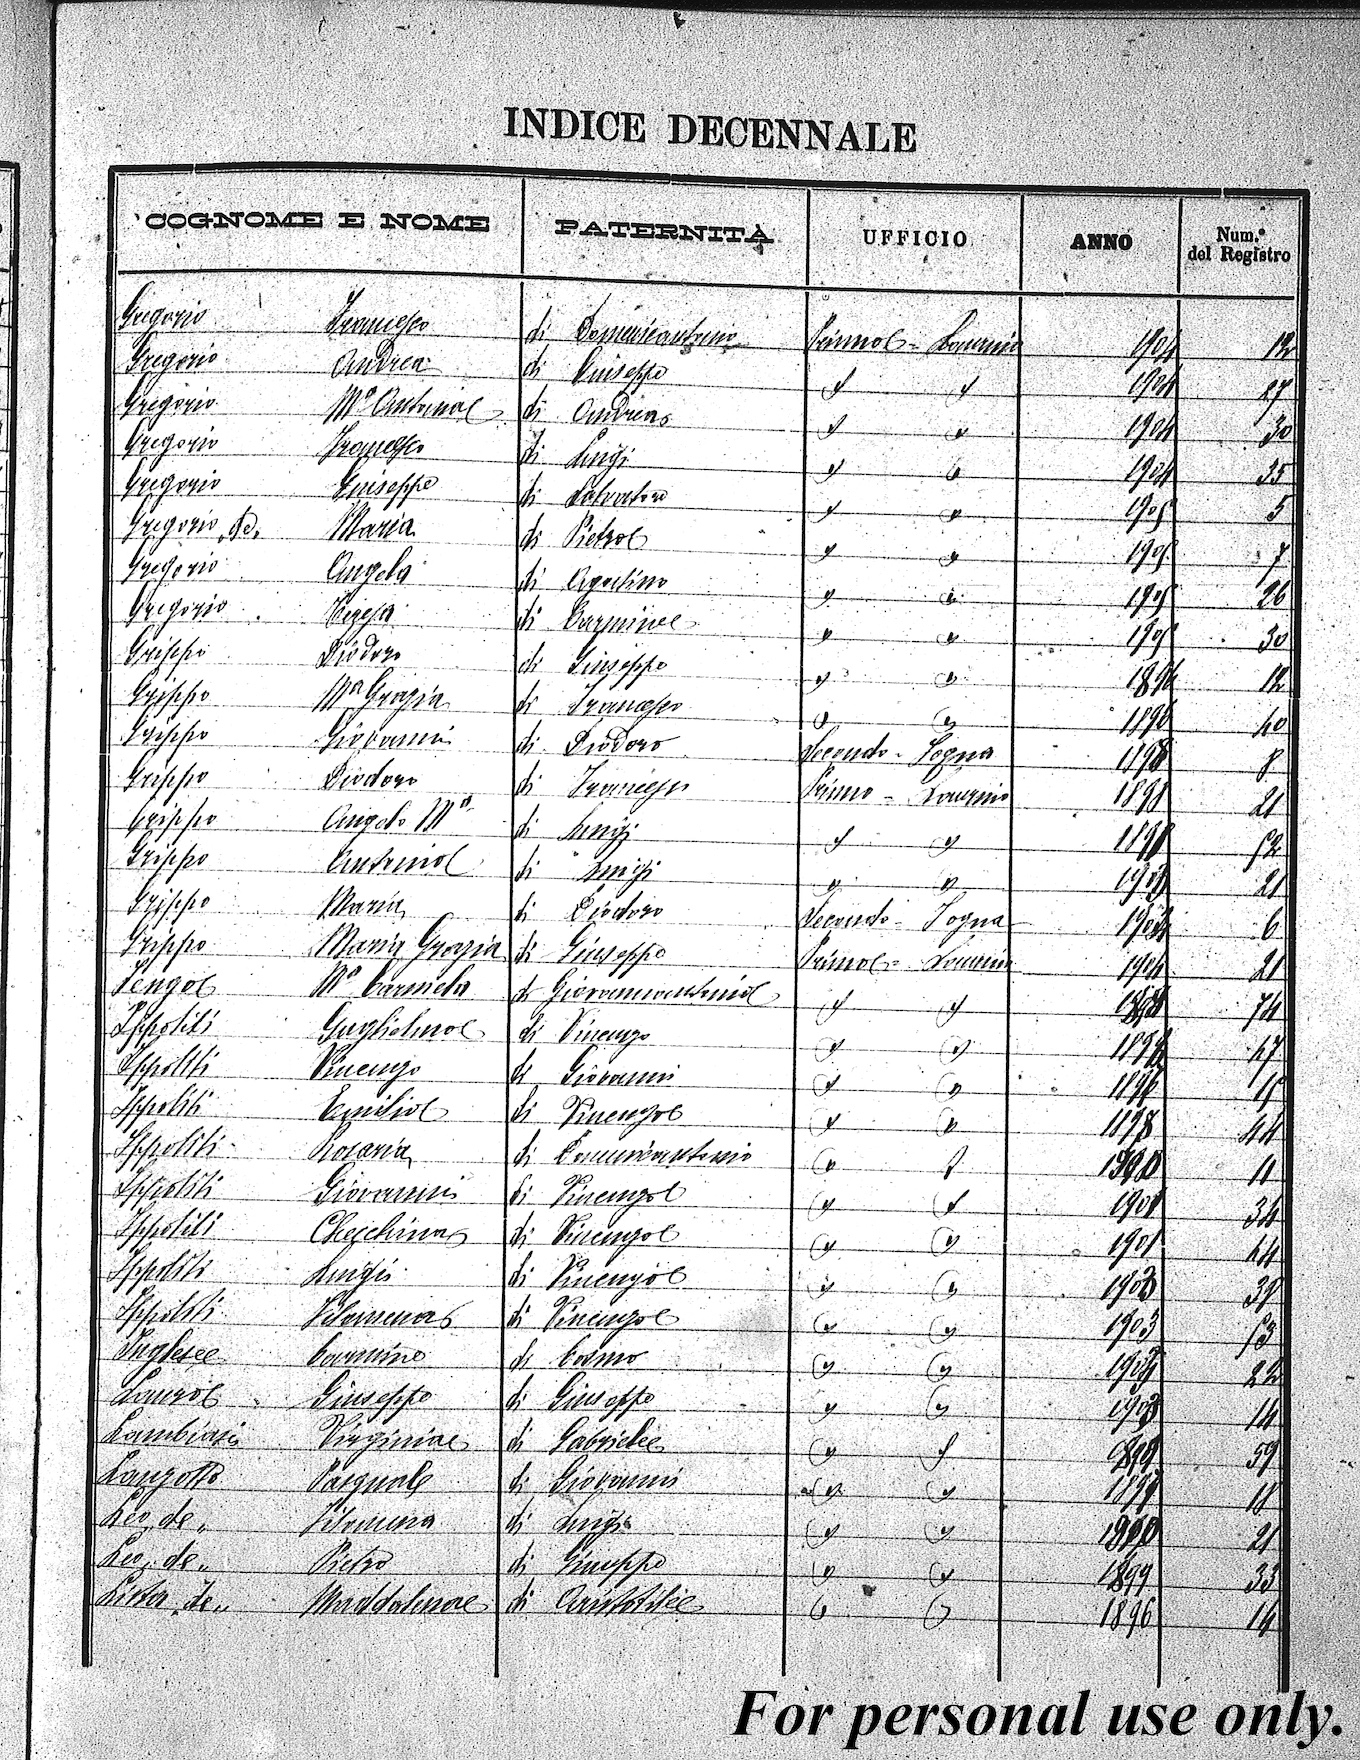 INDICE DECENNALE
COGNOME E NOME PATERNITÀ UFFICIO ANNO Num.º del Registro
Gregorio Francesco di Domenicantonio Primo - Laurino 1904 12
Gregorio Andrea di Giuseppe " " 1904 27
Gregorio Mª Antonia di Andrea " " 1904 30
Gregorio Francesco di Luigi " " 1904 35
Gregorio Giuseppe di Salvatore " " 1905 5
Gregorio "De" Maria di Pietro " " 1905 7
Gregorio Angela di Agostino " " 1905 26
Gregorio Teresa di Carmine " " 1905 30
Grippo Diodoro di Giuseppe " " 1896 12
Grippo Mª Grazia di Francesco " " 1896 40
Grippo Giovanni di Diodoro Secondo - Fogna 1898 8
Grippo Diodoro di Francesco Primo - Laurino 1898 21
Grippo Angela Mª di Luigi " " 1898 52
Grippo Antonio di Luigi " " 1903 21
Grippo Maria di Diodoro Secondo - Fogna 1904 6
Grippo Maria Grazia di Giuseppe Primo - Laurino 1904 21
Mª Carmela di Giovannantonio " " 74
Ippoliti Guglielmo di Vincenzo " " 47
Ippoliti Vincenzo di Giovanni " " 1896 15
Ippoliti Emilio di Vincenzo " " 1898 44
Ippoliti Rosaria di Domenicantonio " " 1900 11
Ippoliti Giovanni di Vincenzo " " 1901 34
Ippoliti Checchina di Vincenzo " " 1901 44
Ippoliti Luigi di Vincenzo " " 1903 39
Ippoliti Filomena di Vincenzo " " 1903 53
Inglese Carmine di Cosmo " " 1904 22
Giuseppe di Giuseppe " " 1903 14
Lambiasi Virginia di Gabriele " " 59
Lanzotto Pasquale di Giovanni " " 1899 18
Leo "de" Filomena di Luigi " " 1900 21
Leo "de" Pietro di Giuseppe " " 1899 33
Lista "de" Maddalena di Aristotile " " 1896 14
For personal use only.